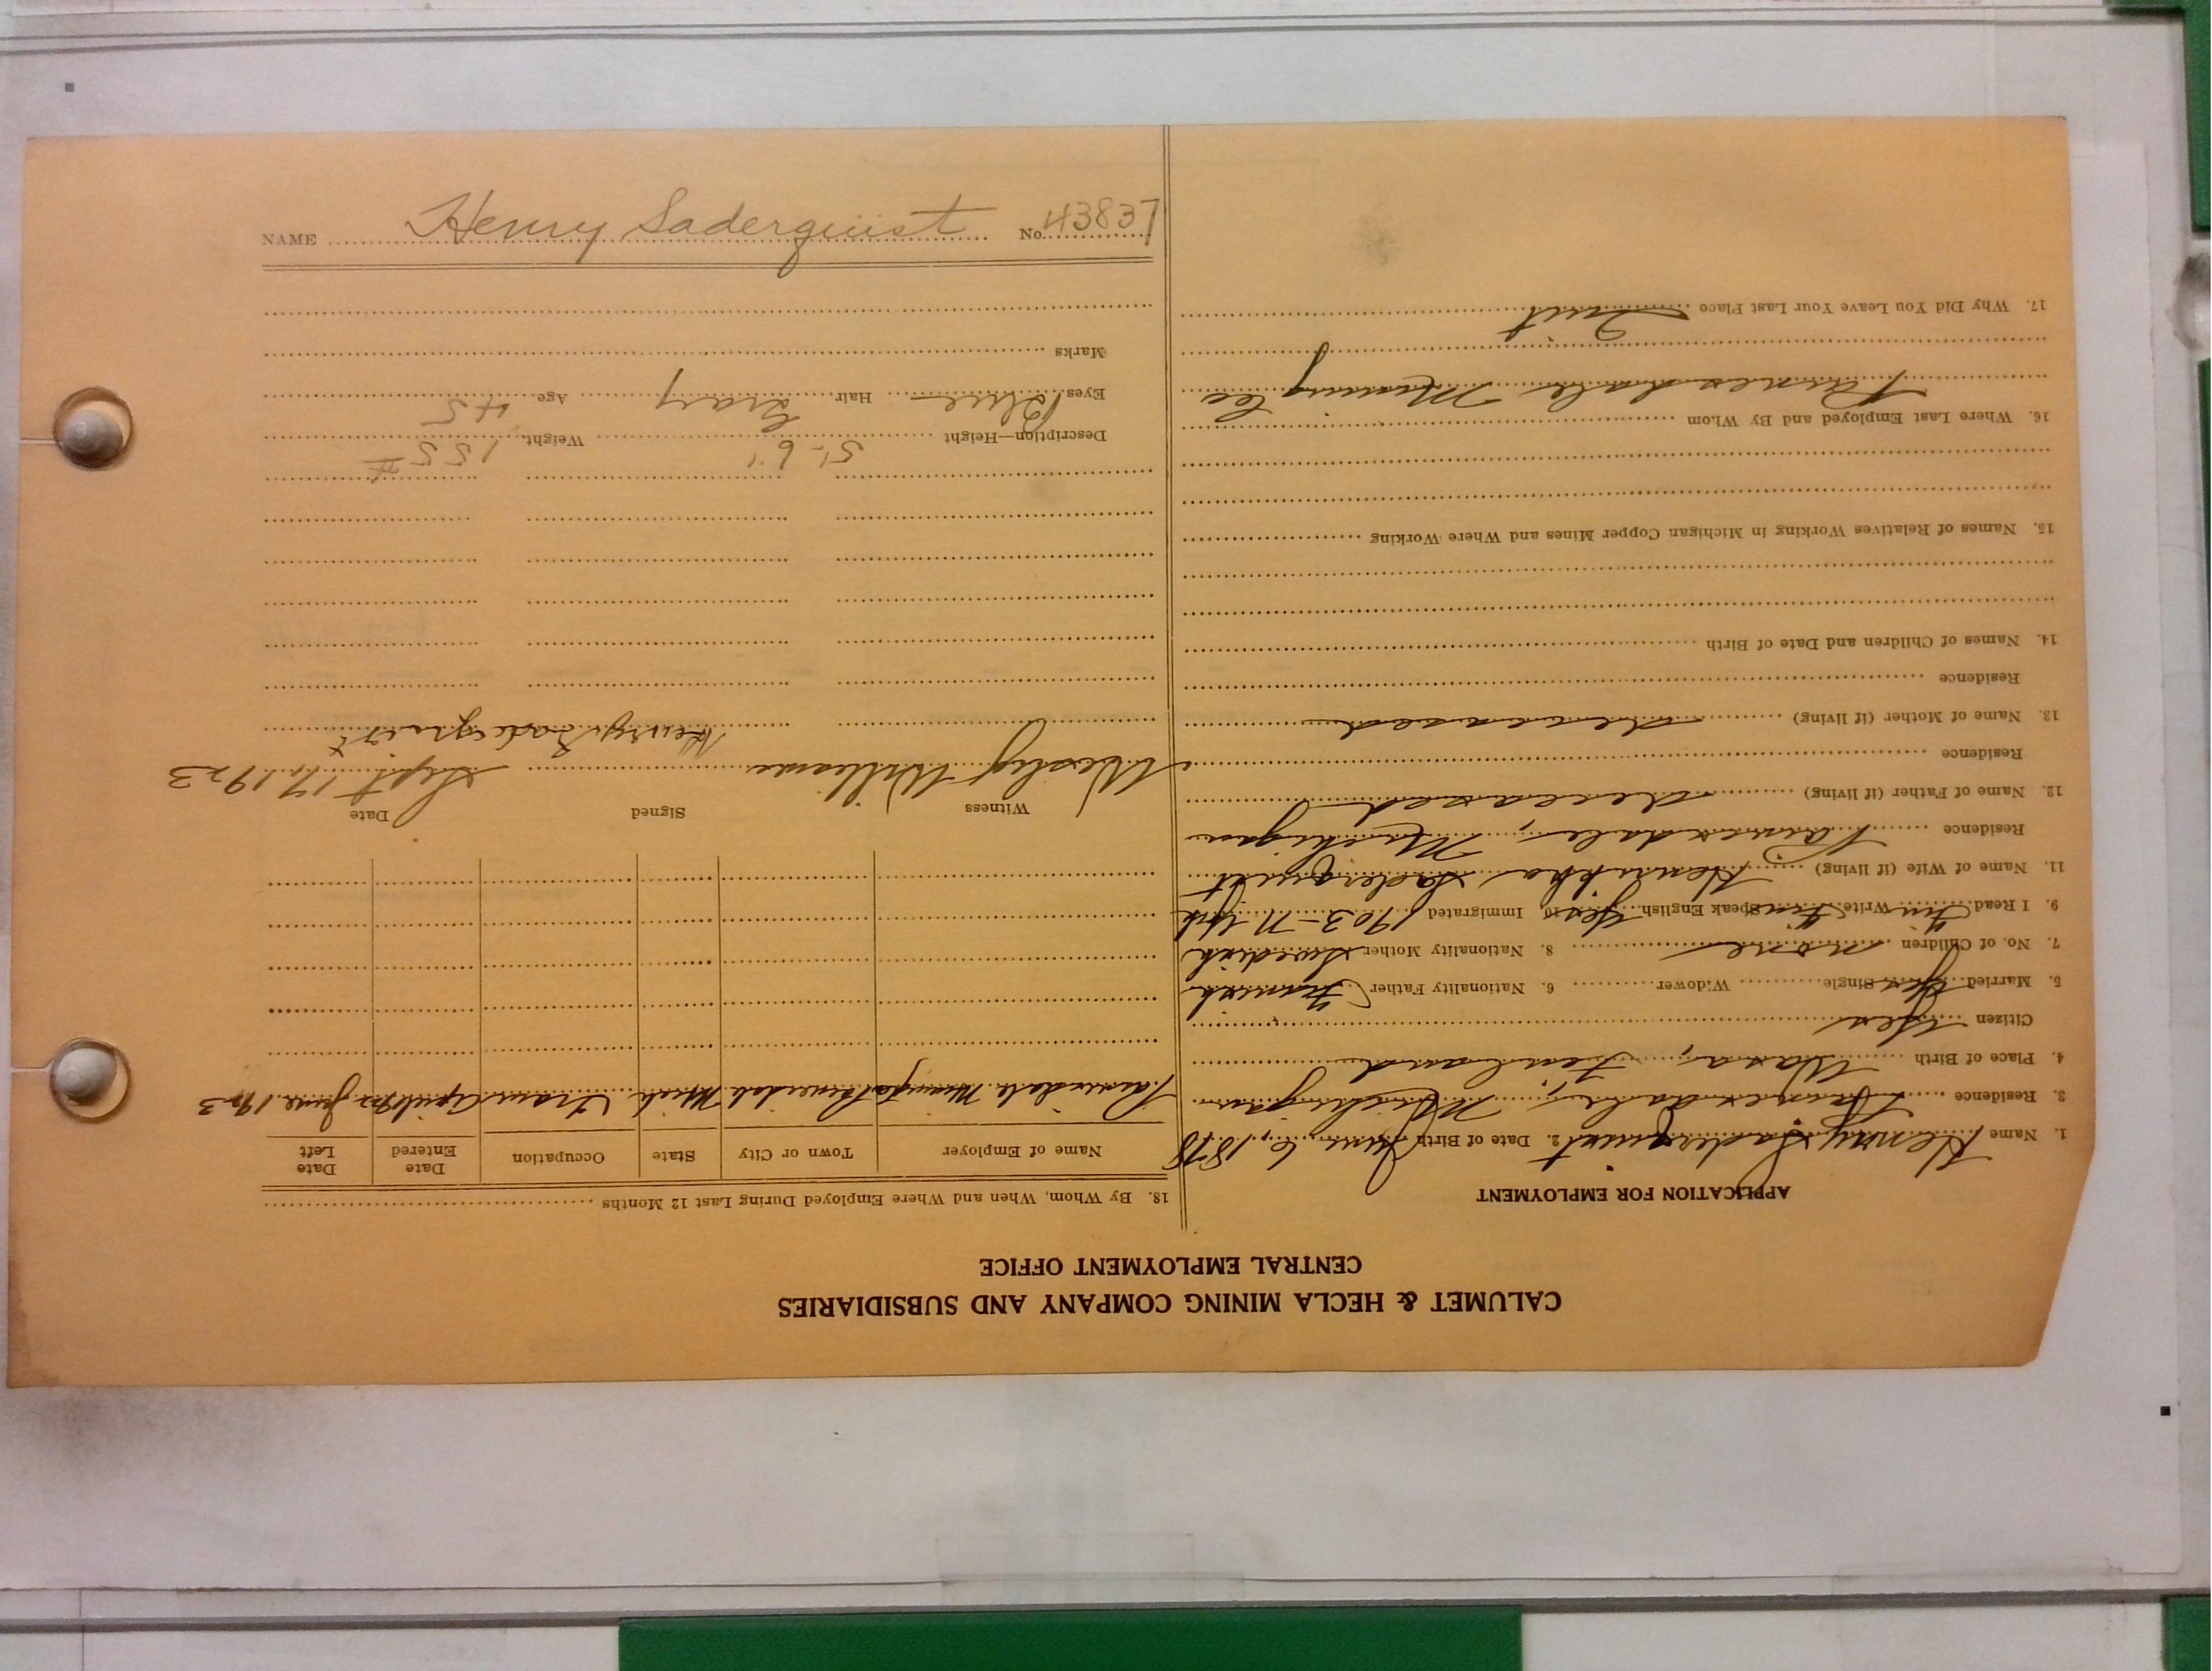 CALUMET & HECLA MINING COMPANY AND SUBSIDIARIES
CENTRAL EMPLOYMENT OFFICE
APPLICATION FOR EMPLOYMENT
1. Name Henry Saderquist 2. Date of Birth June 6, 1878
3. Residence Painesdale, Michigan
4. Place of Birth Wasa, Finland
Citizen Yes
5. Married Yes Single Widower 6. Nationality Father Finnish
7. No. of Children none 8. Nationality Mother Swedish
9. I Read Fin Write Fin Speak English Yes 10. Immigrated 1903 - N. York
11. Name of Wife (if living) Henrikka Saderquist
Residence Painesdale, Michigan
12. Name of Father (if living) deceased
Residence
13. Name of Mother (if living) deceased
Residence
14. Names of Children and Date of Birth
15. Names of Relatives Working in Michigan Copper Mines and Where Working
16. Where Last Employed and By Whom
Painesdale Mining Co
17. Why Did You Leave Your Last Place Quit
18. By Whom, When and Where Employed During Last 12 Months
Name of Employer Town or City State Occupation Date Entered Date Left
Painesdale Mining Co Painesdale Mich Tram April 1922 June 1923
Witness Signed Date
Wesley Williams Henry Saderquist Sept 17, 1923
Description—Height 5'-6" Weight 155 #
Eyes Blue Hair Gray Age 45
Marks
NAME Henry Saderquist No. 43837